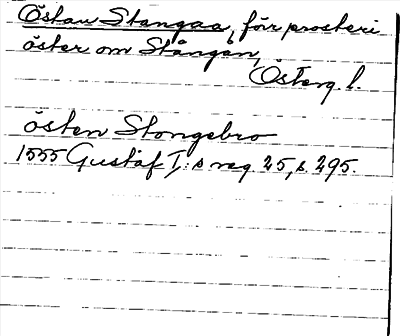 Östan Stangaa, för prosteri
öster om Stångån,
(Österg. l.
östen Stongebro
1555 Gustaf I:s reg. 25, s. 295.